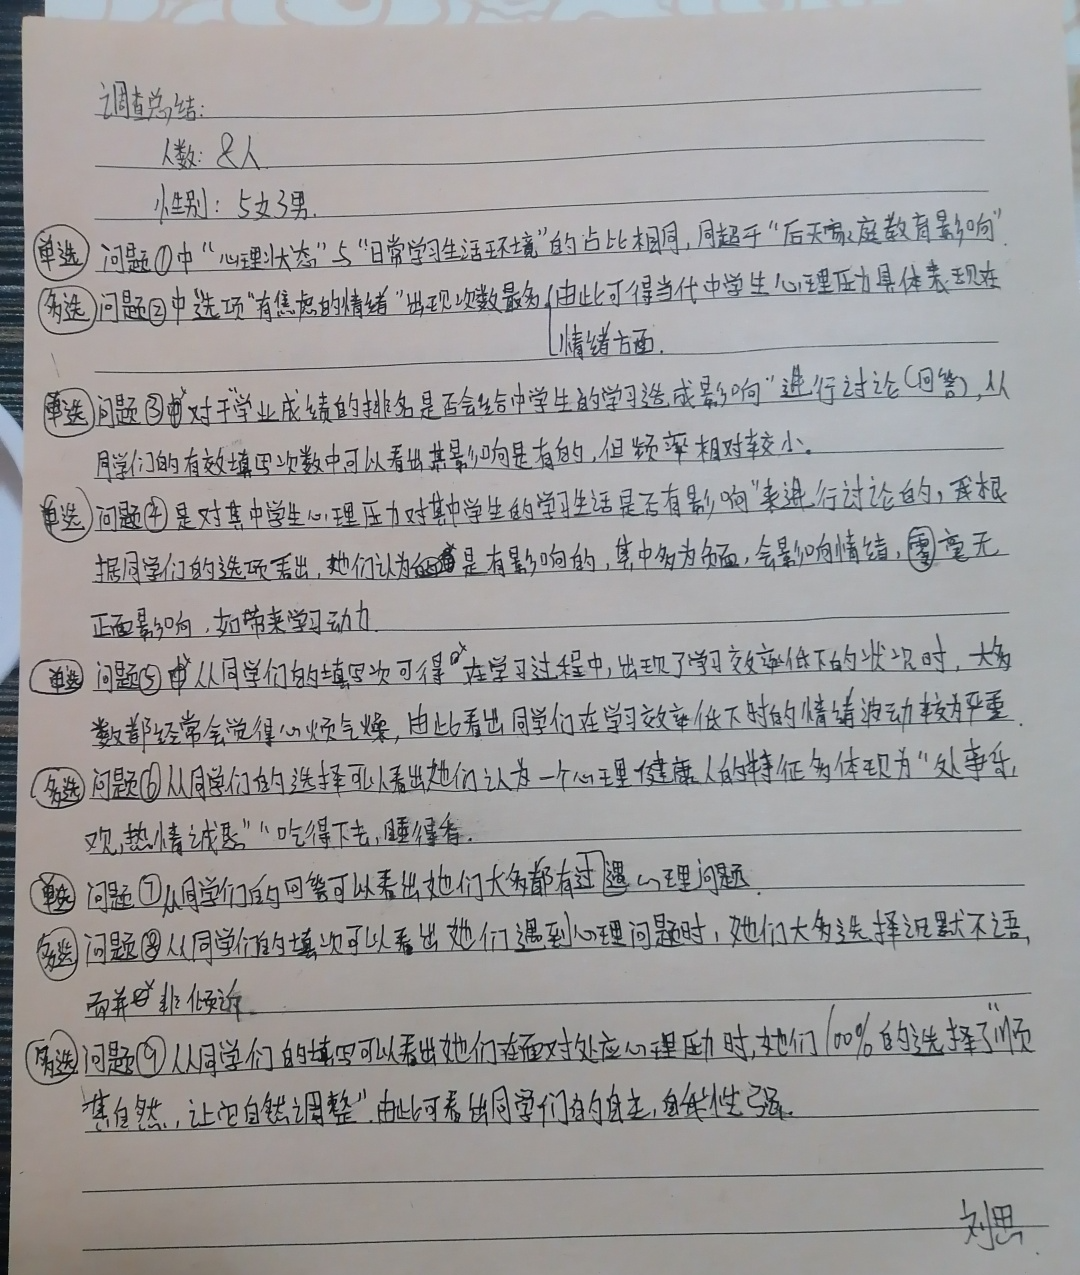 调查总结:
人数: 8人
性别: 5女3男.
单选 问题①中“心理状态”与“日常学习生活环境”的占比相同,同超于“后天家庭教育影响”.
多选 问题②中选项“有焦虑的情绪”出现次数最多,由此可得当代中学生心理压力具体表现在
情绪方面.
单选 问题③对于“学业成绩的排名是否会给中学生的学习造成影响”进行讨论(回答),从
同学们的有效填写次数中可以看出其影响是有的,但频率相对较小。
单选 问题④是对其中学生心理压力对其中学生的学习生活是否有影响”来进行讨论的,我根
据同学们的选项看出,她们认为是有影响的,其中多为负面,会影响情绪,毫无
正面影响,如带来学习动力.
单选 问题⑤从同学们的填写次可得在学习过程中,出现了学习效率低下的状况时,大多
数都经常会觉得心烦气燥,由此看出同学们在学习效率低下时的情绪波动较为严重.
多选 问题⑥从同学们的选择可以看出她们认为一个心理健康人的特征多体现为“处事乐
观,热情诚恳”“吃得下去,睡得香.
单选 问题⑦从同学们的回答可以看出她们大多都有过遇心理问题.
多选 问题⑧从同学们的填次可以看出她们遇到心理问题时,她们大多选择沉默不语,
而并非倾诉.
多选 问题⑨从同学们的填写可以看出她们在面对处应心理压力时,她们100%的选择了“顺
其自然,让它自然调整”.由此可看出同学们的自主,自律性强.
刘思.